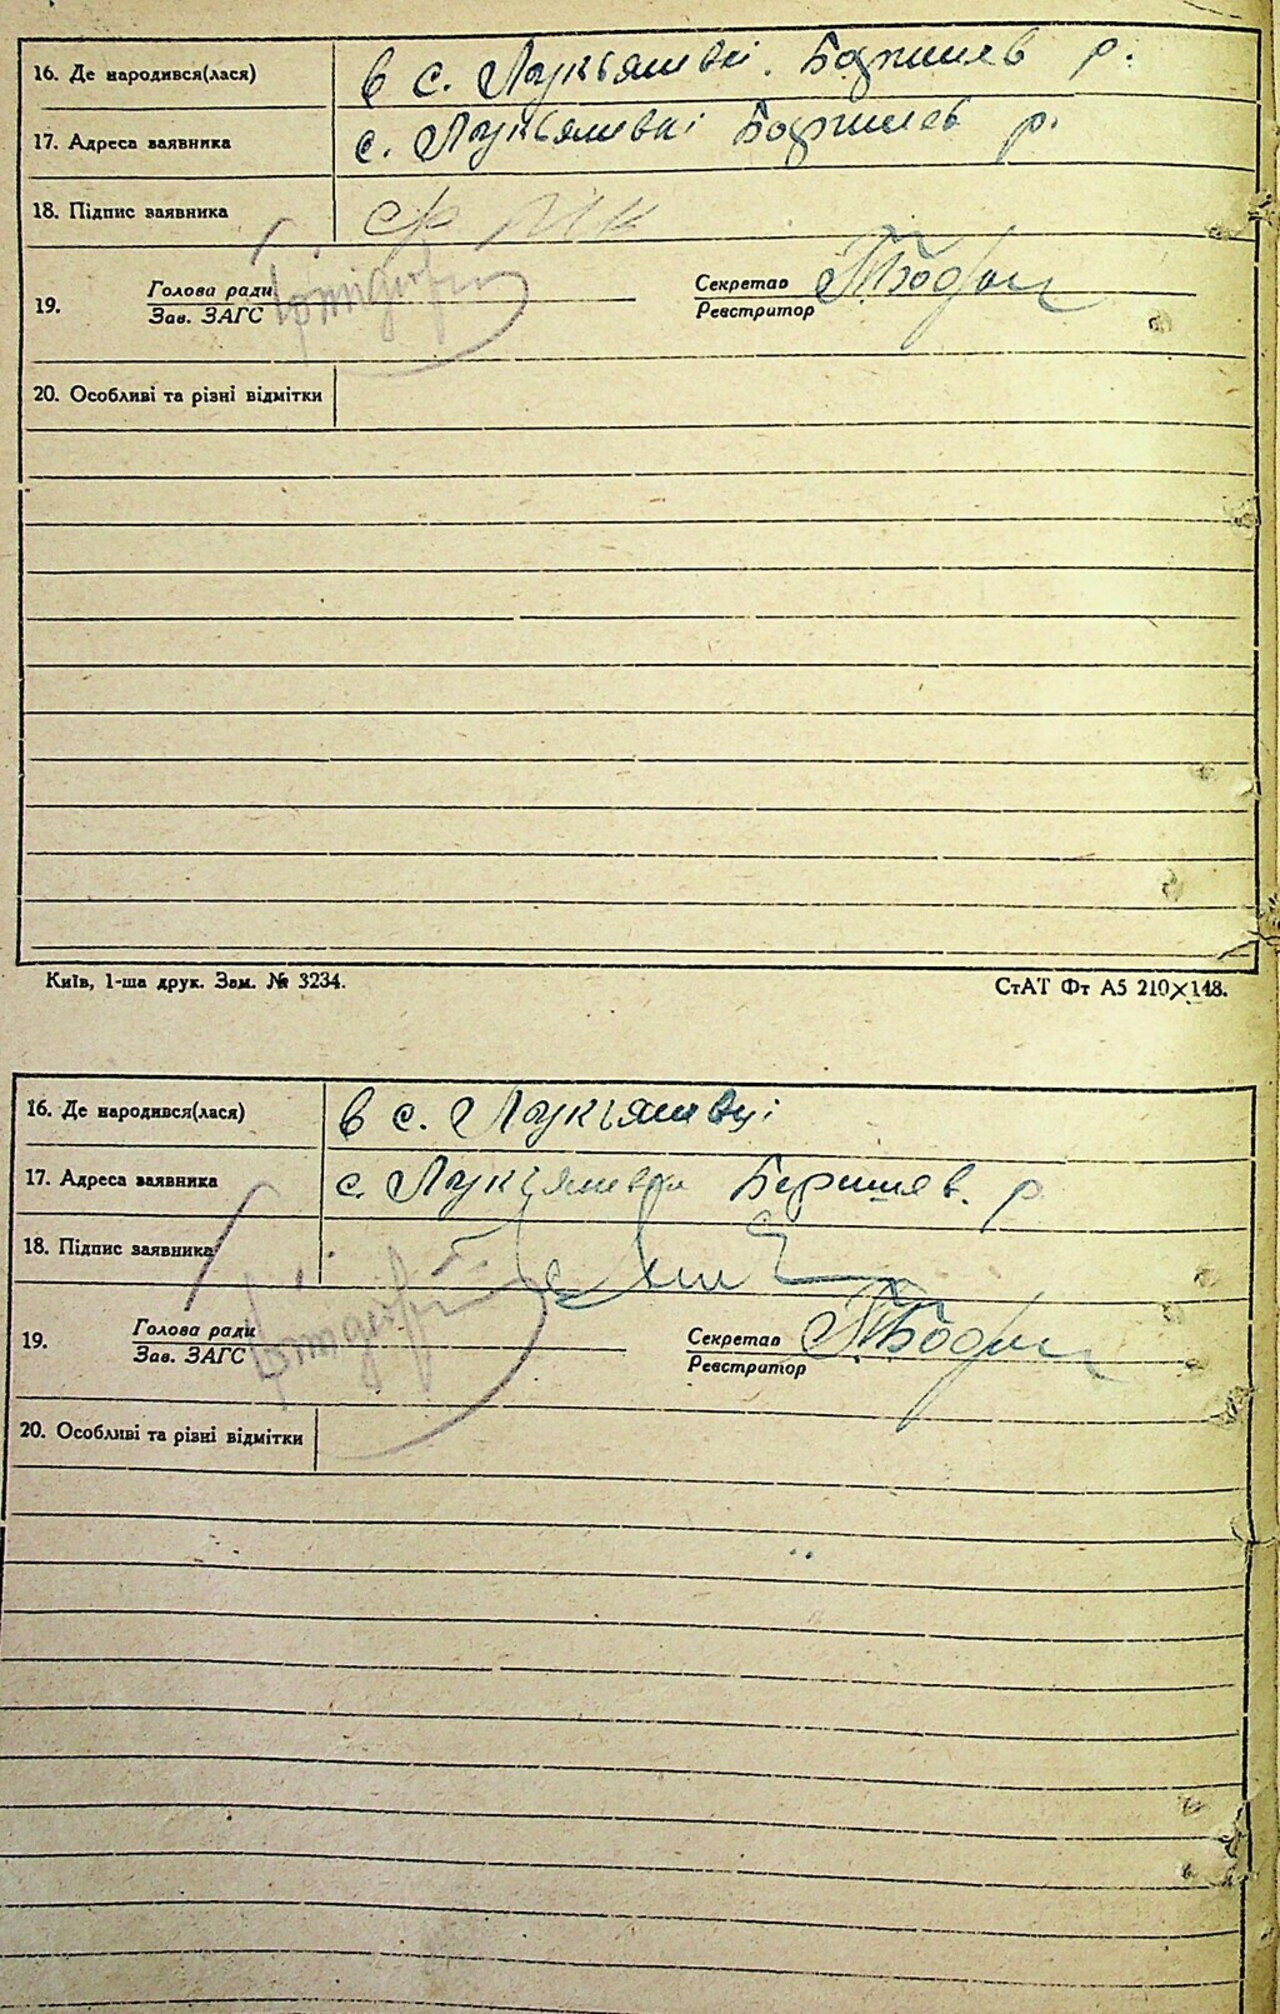 16. Де народився(лася) в с. Лукьяшвкі. Боршшев р.
17. Адреса заявника с. Лукьяшвкі Боршшев р.
18. Підпис заявника
19. Голова ради Секретар
Зав. ЗАГС Реєстритор
20. Особливі та різні відмітки
Київ, 1-ша друк. Зам. № 3234. СтАТ Фт А5 210×148.
16. Де народився(лася) в с. Лукьяшвці
17. Адреса заявника с. Лукьяшвки Бершшев. р
18. Підпис заявника
19. Голова ради Секретар
Зав. ЗАГС Реєстритор
20. Особливі та різні відмітки